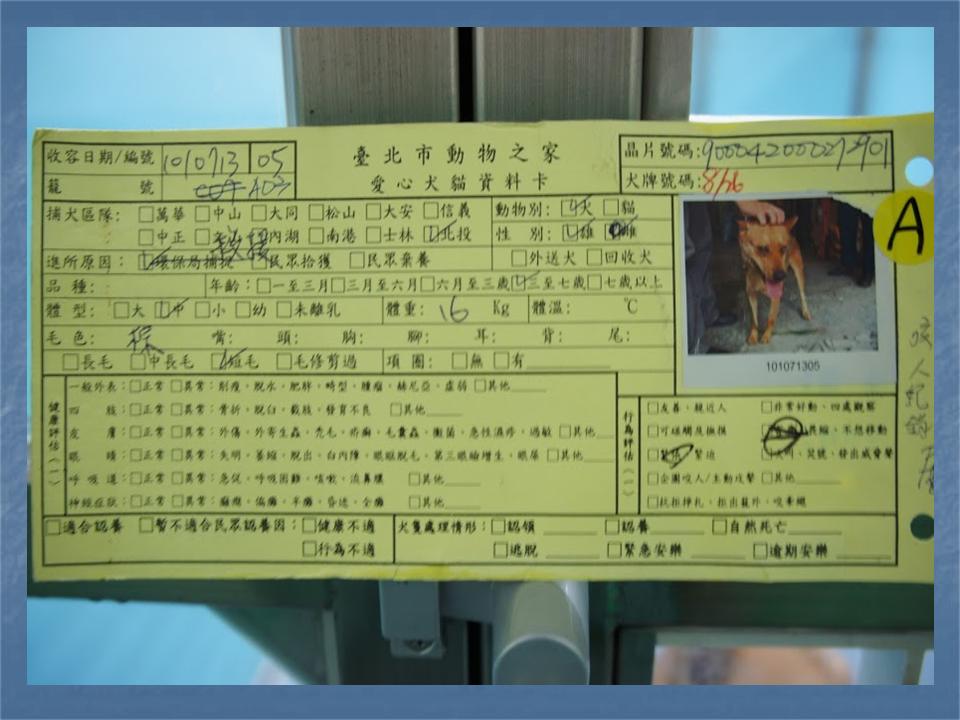 收容日期/編號 1010713 05
臺北市動物之家
晶片號碼:900042000272901
籠 號 A03
愛心犬貓資料卡
犬牌號碼:8/26
A
捕犬區隊: □萬華 □中山 □大同 □松山 □大安 □信義 動物別: □犬 □貓
□中正 □文山 □內湖 □南港 □士林 □北投 性 別: □雄 □雌
進所原因: □環保局捕捉 □民眾拾獲 □民眾棄養 □外送犬 □回收犬
品種: 年齡: □一至三月 □三月至六月 □六月至三歲 □三至七歲 □七歲以上
體型: □大 □中 □小 □幼 □未離乳 體重: 16 Kg 體溫: ℃
毛色: 棕 嘴: 頭: 胸: 腳: 耳: 背: 尾:
□長毛 □中長毛 □短毛 □毛修剪過 項圈: □無 □有
101071305
健康評估(一)
一般外表: □正常 □異常: 削瘦、脫水、肥胖、畸型、腫瘤、赫尼亞、虛弱 □其他
四 肢: □正常 □異常: 骨折、脫臼、截肢、發育不良 □其他
皮 膚: □正常 □異常: 外傷、外寄生蟲、禿毛、疥癬、毛囊蟲、黴菌、急性濕疹、過敏 □其他
眼 睛: □正常 □異常: 失明、萎縮、脫出、白內障、眼眶脫毛、第三眼瞼增生、眼屎 □其他
呼吸道: □正常 □異常: 急促、呼吸困難、咳嗽、流鼻膿 □其他
神經症狀: □正常 □異常: 癲癇、偏癱、半癱、昏迷、全癱 □其他
行為評估(一)
□友善、親近人 □非常好動、四處觀察
□可碰觸及撫摸 畏縮、不想移動
□緊張 緊迫 吠叫、哭號、發出威脅聲
□企圖咬人/主動攻擊 □其他
□抗拒掙扎、拒出籠外、咬牽繩
□適合認養 □暫不適合民眾認養因: □健康不適 犬隻處理情形: □認領 □認養 □自然死亡
□行為不適 □逃脫 □緊急安樂 □逾期安樂
咬人紀錄